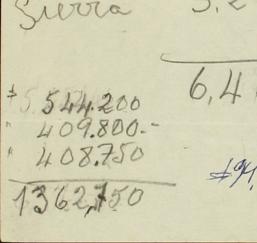 Sierra 5.2
6,4
$ 544.200
" 409.800.-
" 408.750
1362,750